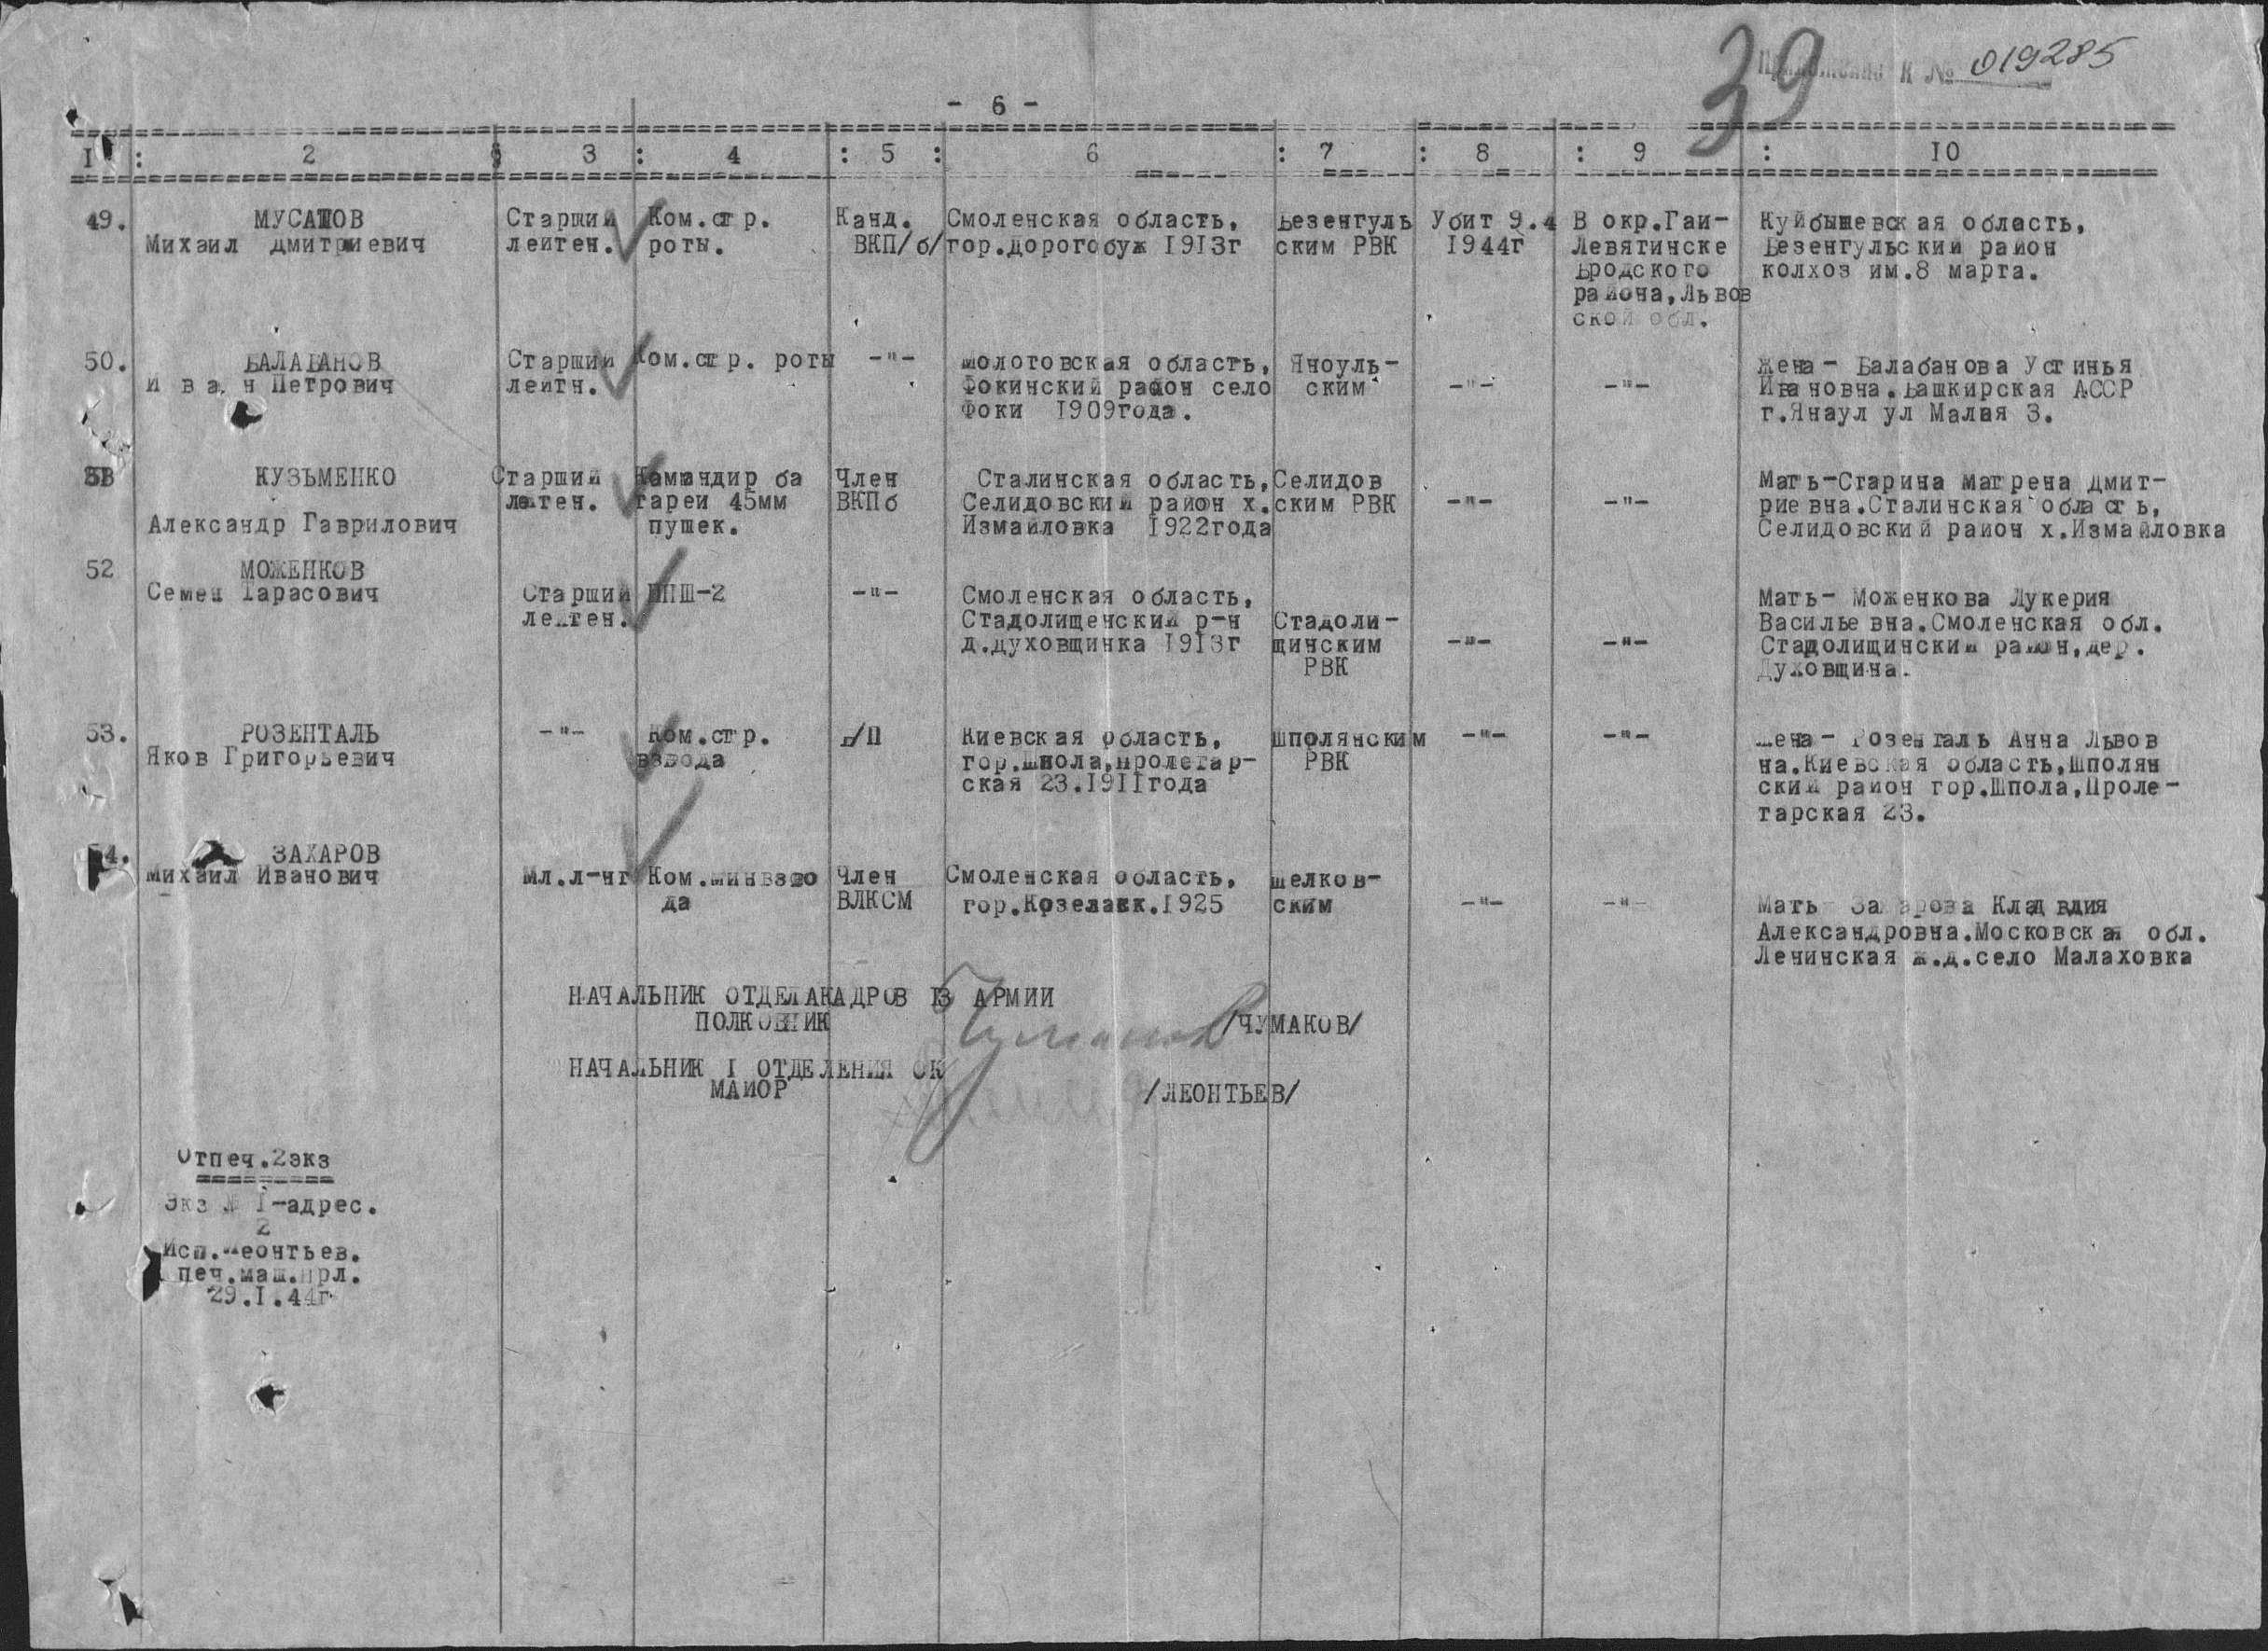 39
Приложение к № 019285
- 6 -
1 : 2 : 3 : 4 : 5 : 6 : 7 : 8 : 9 : 10
49. МУСАТОВ
Михаил Дмитриевич
Старший
лейтен.
Ком.стр.
роты.
Канд.
ВКП/б/
Смоленская область,
гор.Дорогобуж 1913г
Безенгуль
ским РВК
Убит 9.4
1944г
В окр.Гаи-
Левятинске
Бродского
района,Львов
ской обл.
Куйбышевская область,
Безенгульский район
колхоз им.8 марта.
50. БАЛАБАНОВ
И в а н Петрович
Старший
лейтн.
Ком.стр. роты
-"-
Молотовская область,
Фокинский район село
Фоки 1909года.
Яноуль-
ским
-"-
-"-
Жена - Балабанова Устинья
Ивановна.Башкирская АССР
г.Янаул ул Малая 3.
51 КУЗЬМЕНКО
Александр Гаврилович
Старший
лейтен.
Командир ба
тареи 45мм
пушек.
Член
ВКПб
Сталинская область,
Селидовский район х.
Измайловка 1922года
Селидов
ским РВК
-"-
-"-
Мать-Старина Матрена Дмит-
риевна.Сталинская область,
Селидовский район х.Измайловка
52 МОЖЕНКОВ
Семен Тарасович
Старший
лейтен.
ПНШ-2
-"-
Смоленская область,
Стадолищенский р-н
д.Духовщинка 1913г
Стадоли-
щинским
РВК
-"-
-"-
Мать- Моженкова Лукерия
Васильевна.Смоленская обл.
Стадолищинский район,дер.
Духовщина.
53. РОЗЕНТАЛЬ
Яков Григорьевич
-"-
Ком.стр.
взвода
б/п
Киевская область,
гор.Шпола,Пролетар-
ская 23.1911года
Шполянским
РВК
-"-
-"-
Жена - Розенталь Анна Львов
на.Киевская область,Шполян
ский район гор.Шпола,Проле-
тарская 23.
54. ЗАХАРОВ
Михаил Иванович
Мл.л-нт
Ком.минвзво
да
Член
ВЛКСМ
Смоленская область,
гор.Козельск.1925
Шелков-
ским
-"-
-"-
Мать Захарова Клавдия
Александровна.Московская обл.
Ленинская ж.д.село Малаховка
НАЧАЛЬНИК ОТДЕЛАКАДРОВ 13 АРМИИ
ПОЛКОВНИК /ЧУМАКОВ/
НАЧАЛЬНИК 1 ОТДЕЛЕНИЯ ОК
МАЙОР /ЛЕОНТЬЕВ/
Отпеч.2экз
Экз № 1-адрес.
2
Исп.Леонтьев.
печ.маш.
29.1.44г